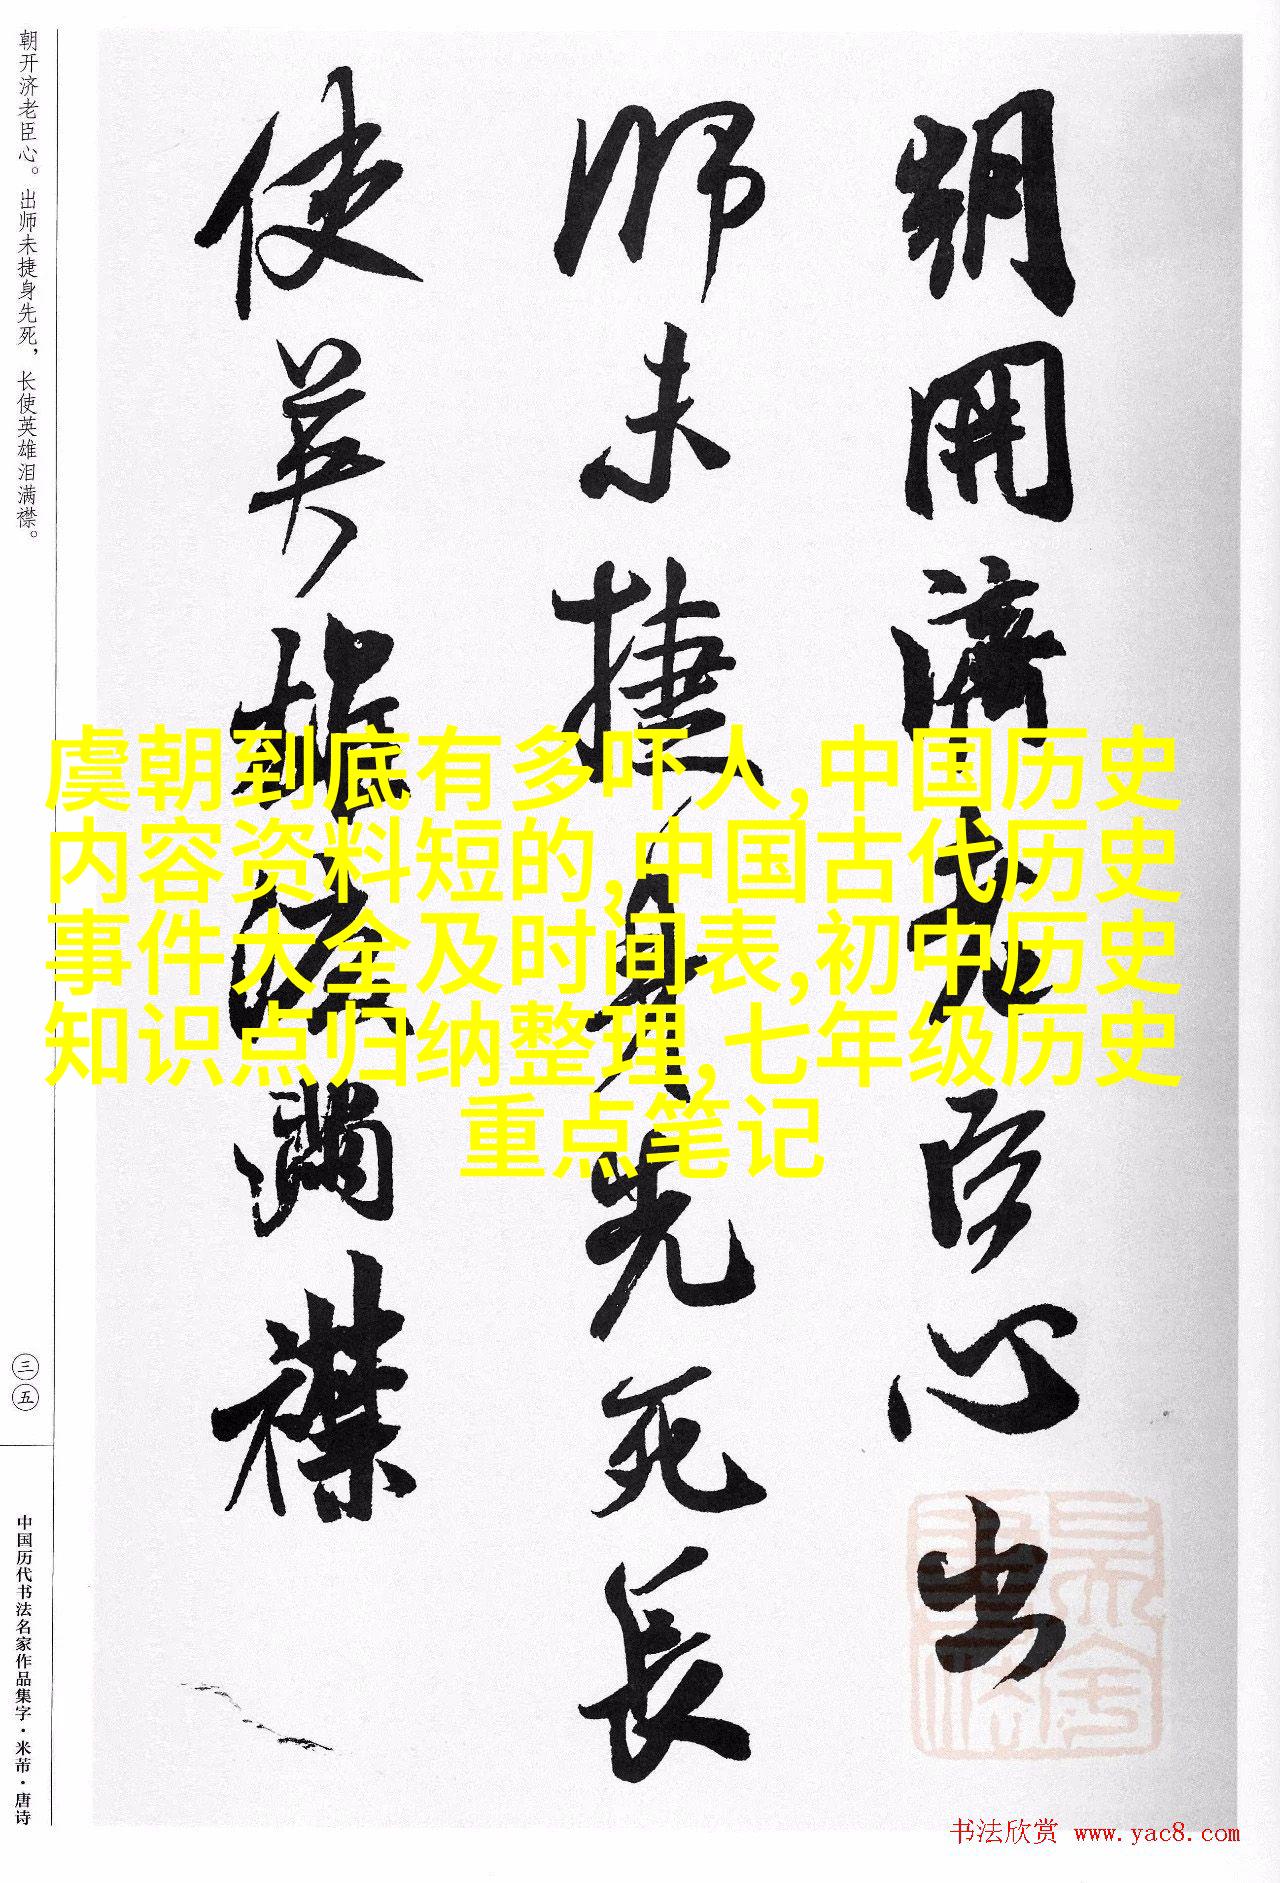 朝开济老臣心。出师未捷身先死，长使英雄泪满襟。
三五
中国历代书法名家作品集字·米芾·唐诗
朝開濟老臣心出
師未捷身先死長
使英雄淚滿襟
虞朝到底有多吓人,中国历史
内容资料短的,中国古代历史
事件大全及时间表,初中历史
知识点归纳整理,七年级历史
重点笔记
书法欣赏 www.yac8.com